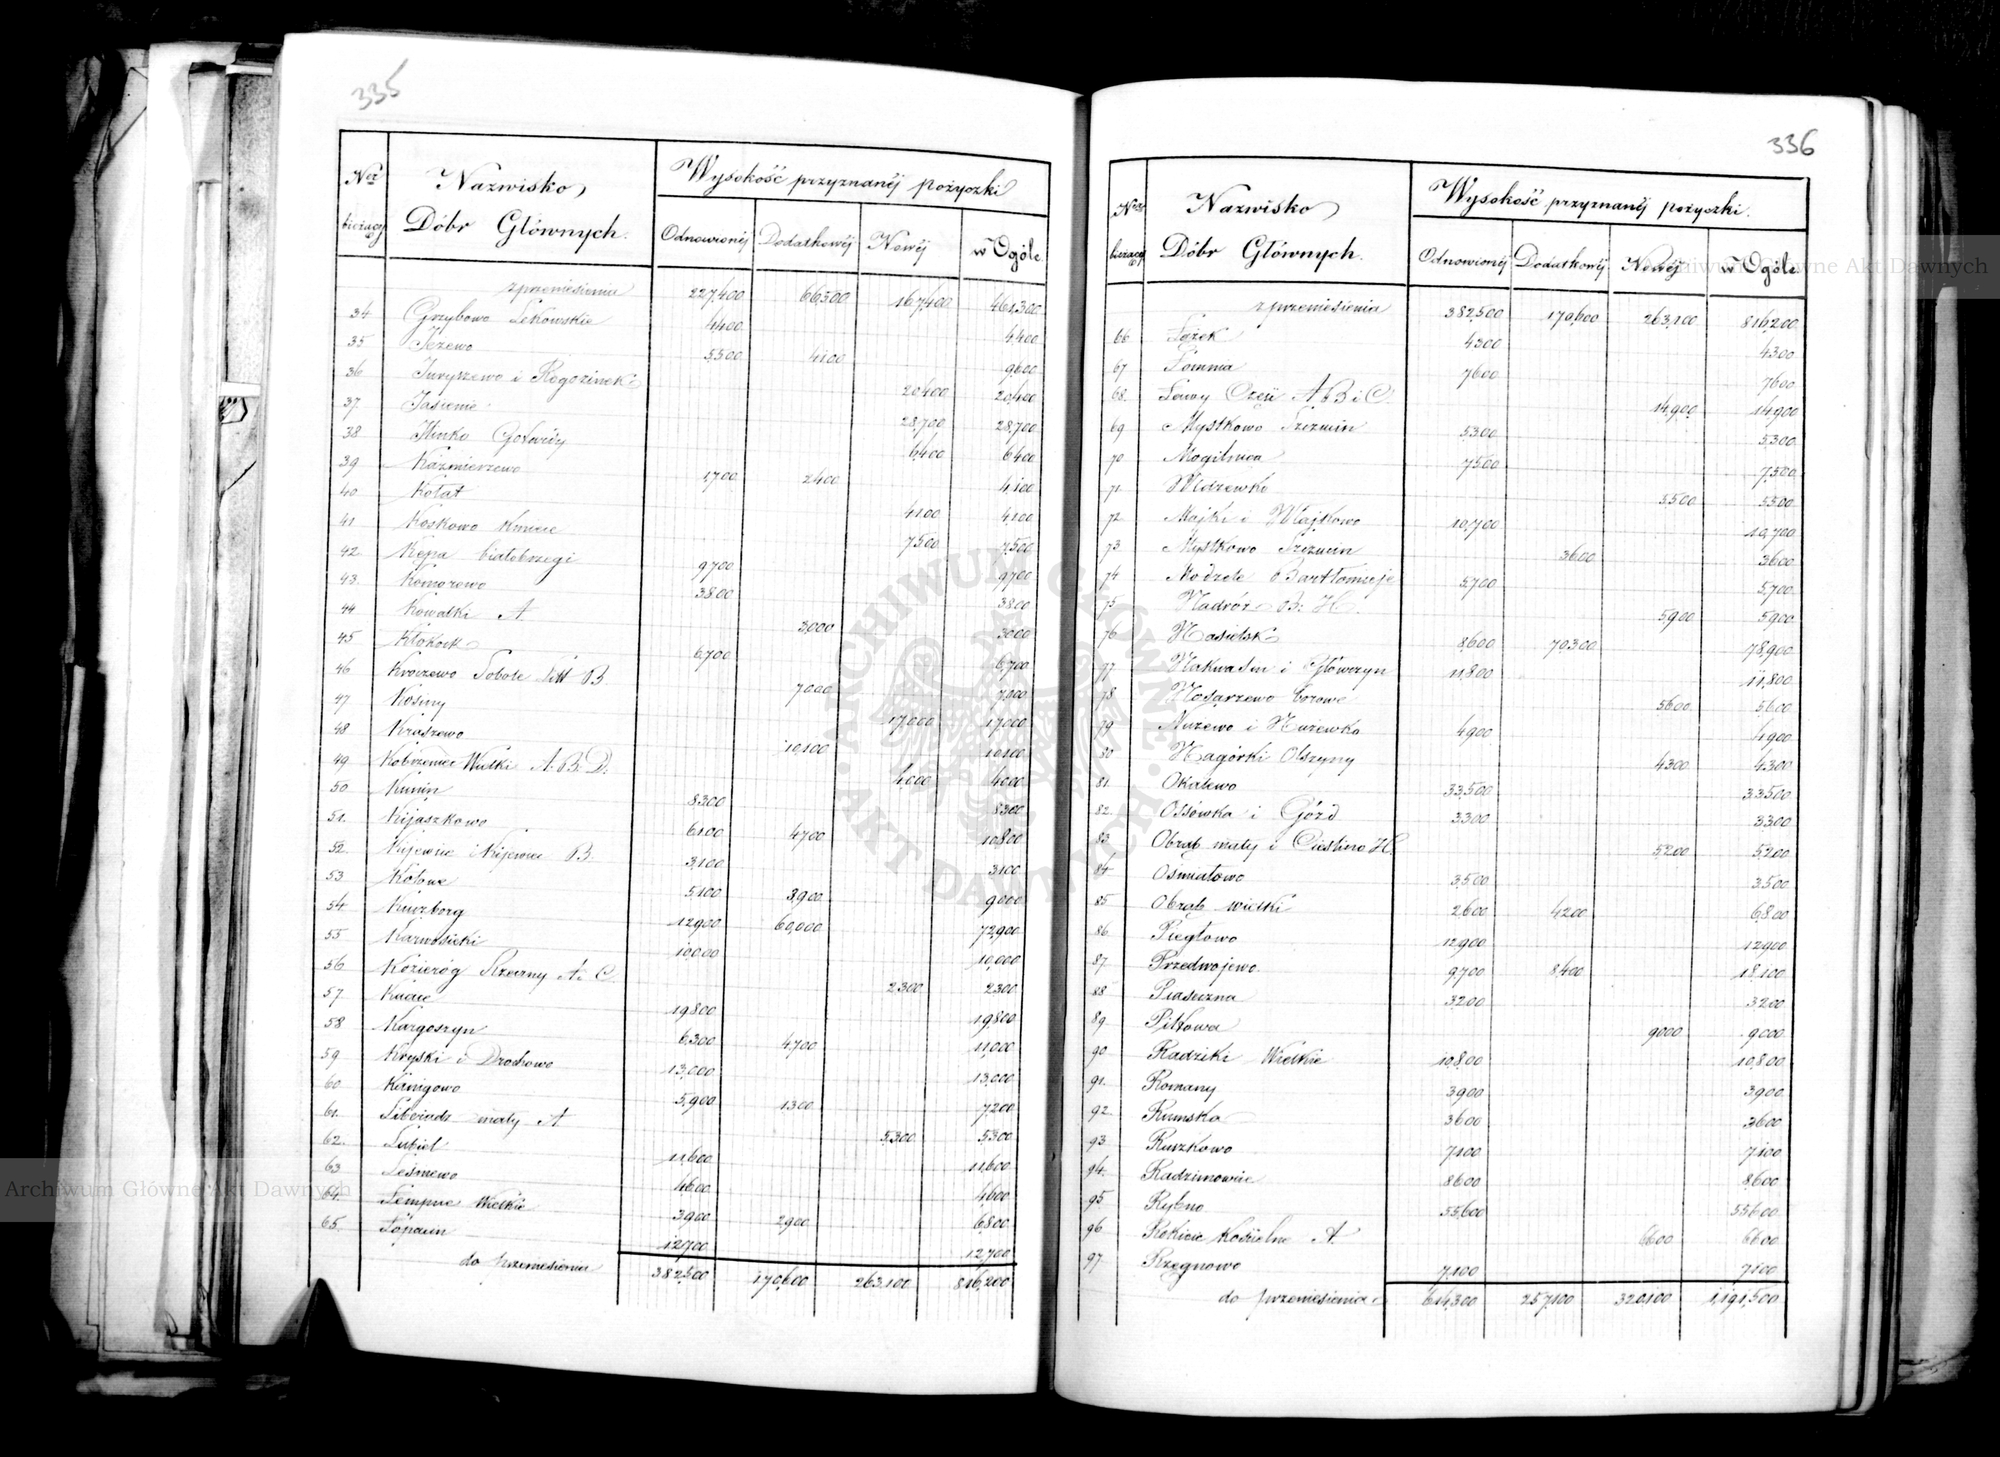 335
Nr
bieżący
Nazwisko
Dóbr Głównych.
Wysokość przyznanéj pożyczki
Odnowionéj Dodatkowéj Nowéj w Ogóle
z przeniesienia 227,400 66,500 167,400 461,300
34 Grzybowo Lekowskie 4400 4,400
35 Jeżewo 5500 4100 9600
36 Juryszewo i Rogozinek 20,400 20,400
37. Jasienie 28,700 28,700
38 Ilinko 6,400 6400
39 Kaźmierzewo 1,700 2400 4,100
40 Kołat 4100 4100
41 Koskowo 7500 7,500
42 Kępa białobrzegi 9700 9700
43 Komorowo 3800 3800
44 Kowalki A 3000 3000
45 Kłokock 6,700 6,700
46 Kroczewo Sobole B 7000 7,000
47 Kosiny 17,000 17,000
48 Kraszewo 10,100 10,100
49 Kobrzeniec Wielki A. B. D. 4,000 4000
50 Kunin 8300 8300
51. Kijaszkowo 6100 4700 10,800
52. Kijewice i Kijewice B. 3,100 3100
53 Kotowe 5100 3,900 9000
54 Kuczborg 12900 60,000 72,900
55 Karwosieki 10,000 10,000
56 Kozieróg Rzeczny A i C 2300 2300
57 Kucice 19800 19,800
58 Kargoszyn 6,300 4,700 11,000
59 Kryski i Drochowo 13,000 13,000
60 Kanigowo 5,900 1300 7200
61. mały A 5,300 5300
62. Lubiel 11,600 11,600
63 Leśniewo 4600 4,600
64 Lempice Wielkie 3900 2900 6,800
65. Łopacin 12,700 12,700
do przeniesienia 382,500 170,600 263,100 816,200
336
Nr
bieżący
Nazwisko
Dóbr Głównych.
Wysokość przyznanéj pożyczki.
Odnowionéj Dodatkowéj Nowéj w Ogóle
z przeniesienia 382,500 170,600 263,100 816,200
66 Łążek 4300 4300
67 Łomnia 7600 7600
68. Części A B i C. 14,900 14,900
69 Mystkowo Szczucin 5300 5,300
70 Mogilnica 7500 7,500
71. Mdzewko 5500 5500
72. Majki i Majkowo 10,700 10,700
73. Mystkowo Szczucin 3600 3600
74 Modzele Bartłomieje 5,700 5,700
75 Nadróż B: H. 5,900 5900
76 Nasielsk 8,600 70,300 78,900
77 Nakwasin i Główczyn 11,800 11,800
78 Nosarzewo borowe 5600 5,600
79 Nużewo i Nużewko 4900 4900
80 Nagórki Olszyny 4300 4300
81. Okalewo 33,500 33500
82. Ossówka i Gózd 3300 3300
83 Obrąb mały i Cieślino H. 5,200 5,200
84 Ośmiałowo 3,500 3500
85 Obrąb wielki 2600 4200 6,800
86 Pięgłowo 12900 12900
87. Przedwojewo 9,700 8,400 18,100
88 Piaseczna 3200 3200
89 Pilłowa 9000 9000
90 Radziki Wielkie 10,800 10,800
91. Romany 3900 3900
92 Rumska 3600 3600
93 Ruszkowo 7100 7,100
94. Radzimowice 8600 8,600
95 Rybno 55,600 55600
96 Rokicie Kościelne A. 6600 6600
97 Rzęgnowo 7,100 7,100
do przeniesienia 614,300 257,100 320,100 1,191,500
Archiwum Główne Akt Dawnych
Archiwum Główne Akt Dawnych
ARCHIWUM GŁÓWNE AKT DAWNYCH